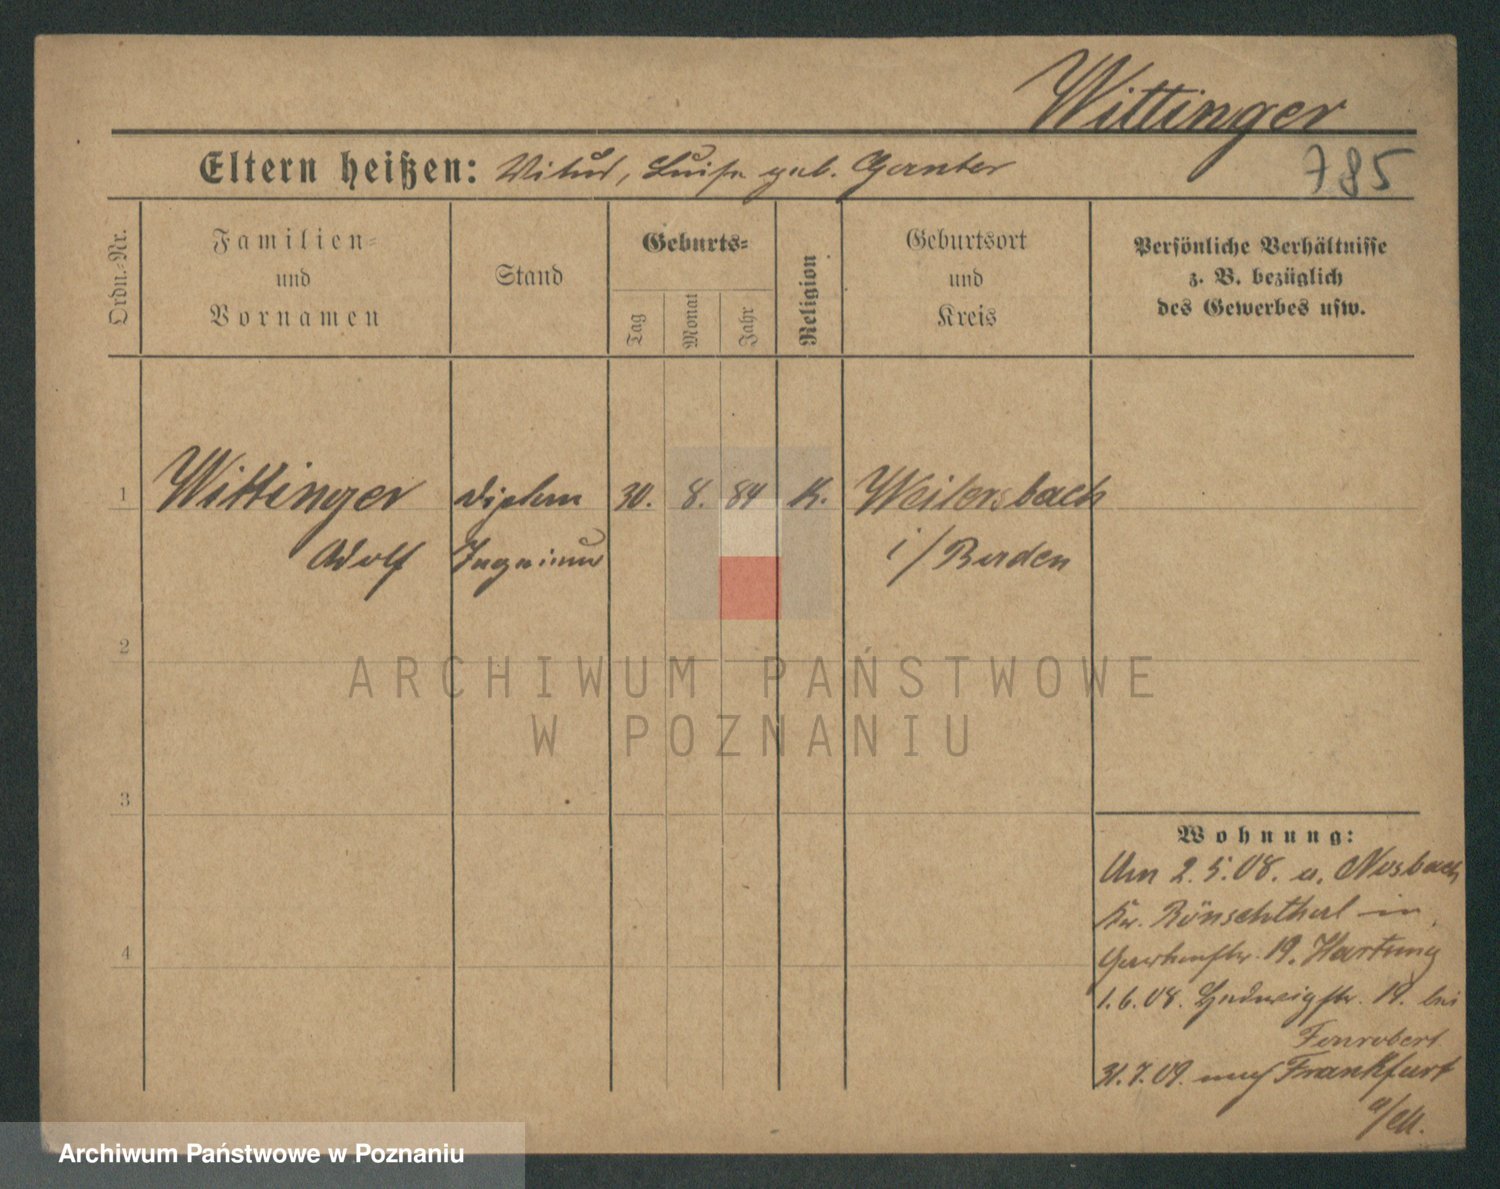 Wittinger
785
Eltern heißen: Vitus, Luise geb. Ganter
Ordn.-Nr.
Familien-
und
Vornamen
Stand
Geburts-
Tag
Monat
Jahr
Religion
Geburtsort
und
Kreis
Persönliche Verhältnisse
z. B. bezüglich
des Gewerbes usw.
1 Wittinger Diplom 30. 8. 84 K. Weilersbach
Adolf Ingenieur i/Baden
2
ARCHIWUM PAŃSTWOWE
W POZNANIU
3
4
Wohnung:
Am 2.5.08. a. Mosbach
Kr.
Gartenstr. 19. Hartung
1.6.08. Hedwigstr. 19. bei
Fonrobert
31.7.09. nach Frankfurt
a/M.
Archiwum Państwowe w Poznaniu